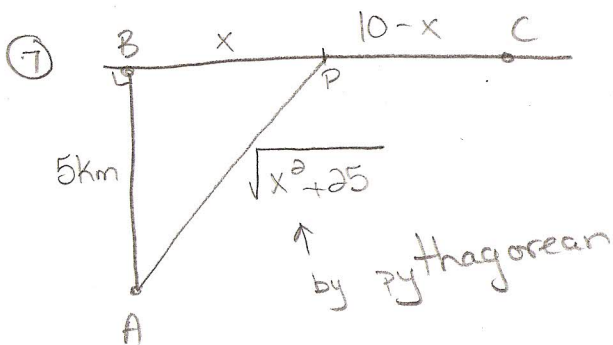 7
B
x
10-x
C
P
5km
√x²+25
↑
by pythagorean
A